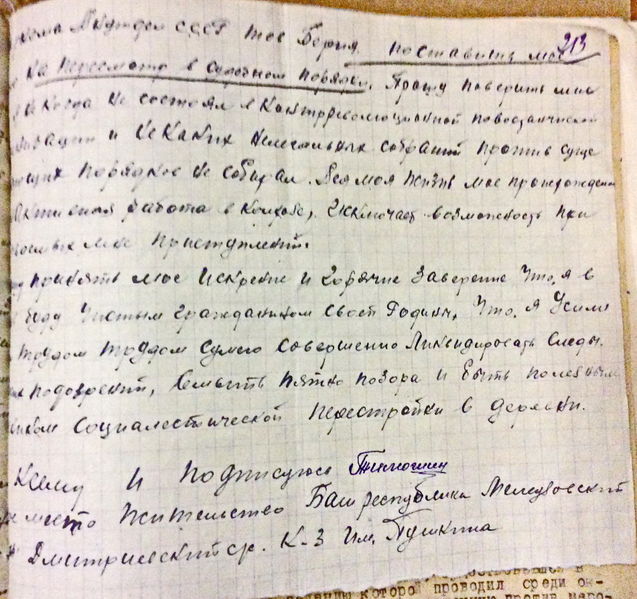 213
кома Внутдел СССР тов Берия поставить мое
на пересмотр в судебном порядке. Прошу поверить мне
никогда не состоял в контрреволюционной повостанческой
низации и некаких нелегальных собраний против суще
вующих порядков не собирал. Вся моя жизнь мое происхождение
активная работа в колхозе, исключает возможность при
мне преступлений.
принять мое искрение и горячие заверение что, я в
буду чистым гражданином своей Родины, что, я усили
трудом трудом сумею совершенно ликвидировать следы.
подозрений, смыть пятно позора и быть полезным
ником социалестической перестройки в деревни.
к сему и подписуюсь
место жительство Баш республика Мелеузовский
Дмитриевский ср. К-з им. Пушкина
которой проводил среди ок-
против наро-